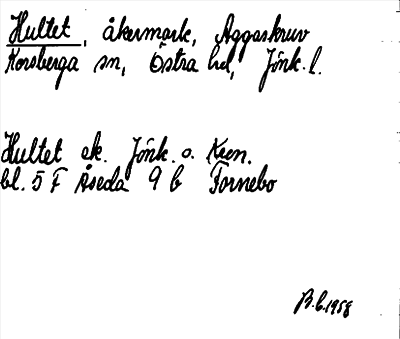 Hultet, åkermark, Aggaskruv
Korsberga sn, Östra hd, Jönk. l.
Hultet ek. Jönk. o. Kron.
bl. 5 F Åseda 9 b Fornebo
B.C. 1958